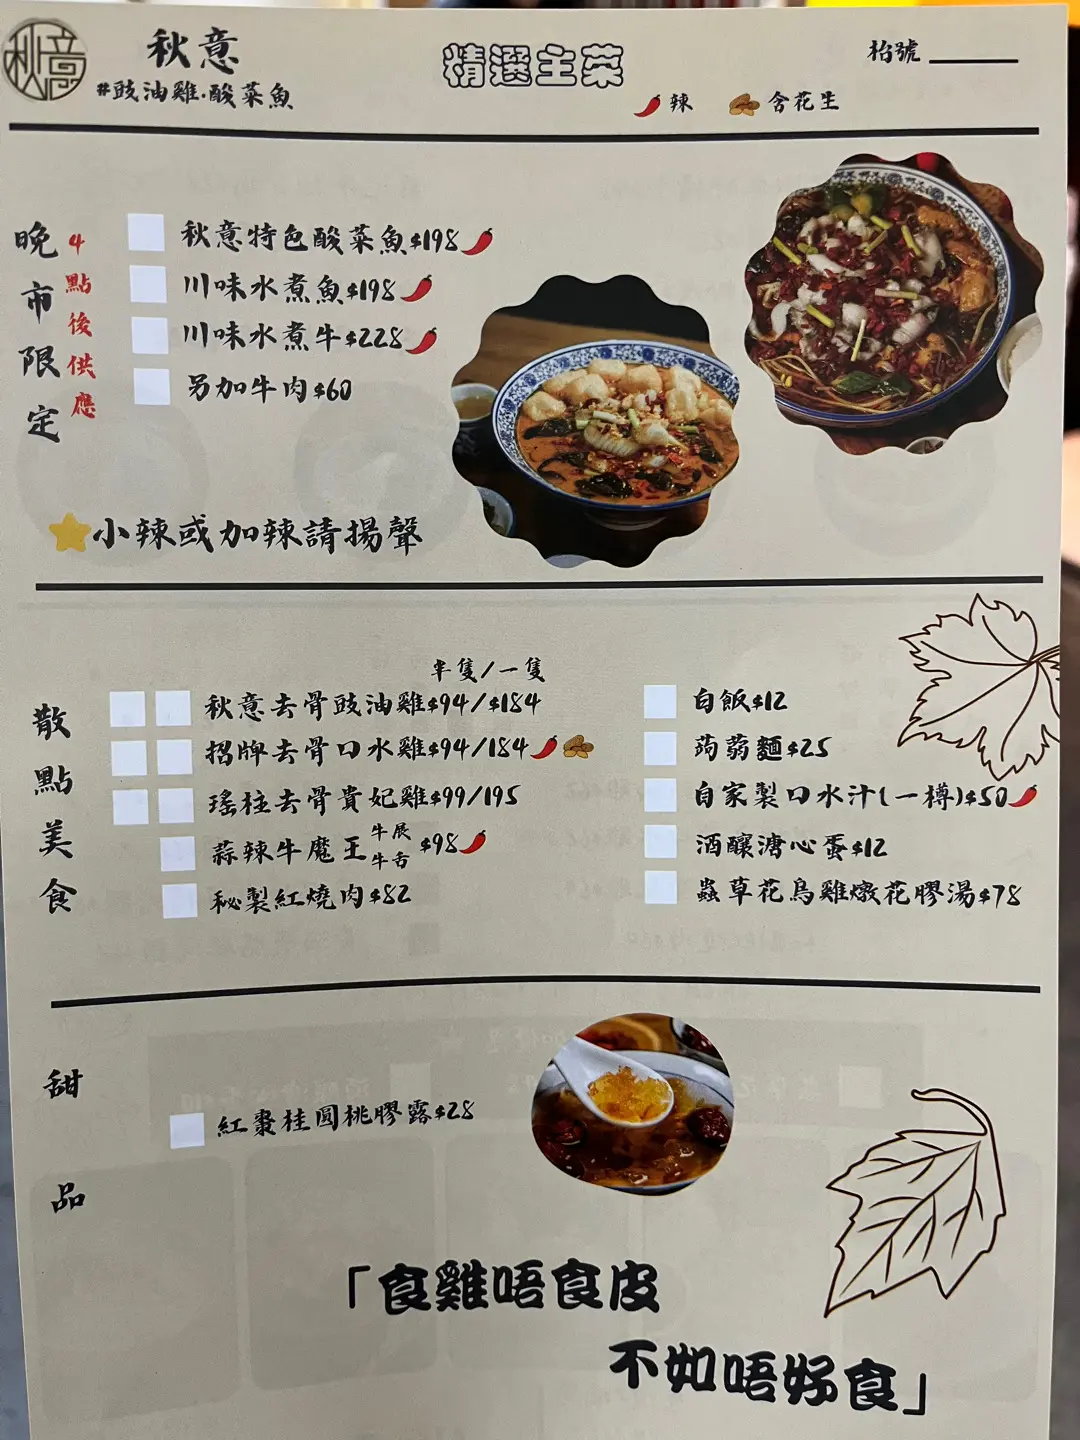 秋意
秋意
#豉油雞·酸菜魚
精選主菜
枱號
辣
含花生
晚市限定
4點後供應
秋意特色酸菜魚$198
川味水煮魚$198
川味水煮牛$228
另加牛肉$60
小辣或加辣請揚聲
散點美食
半隻/一隻
秋意去骨豉油雞$94/$184
招牌去骨口水雞$94/184
瑤柱去骨貴妃雞$99/195
蒜辣牛魔王 牛展 牛舌 $98
秘製紅燒肉$82
白飯$12
蒟蒻麵$25
自家製口水汁(一樽)$50
酒釀溏心蛋$12
蟲草花烏雞燉花膠湯$78
甜品
紅棗桂圓桃膠露$28
「食雞唔食皮
不如唔好食」